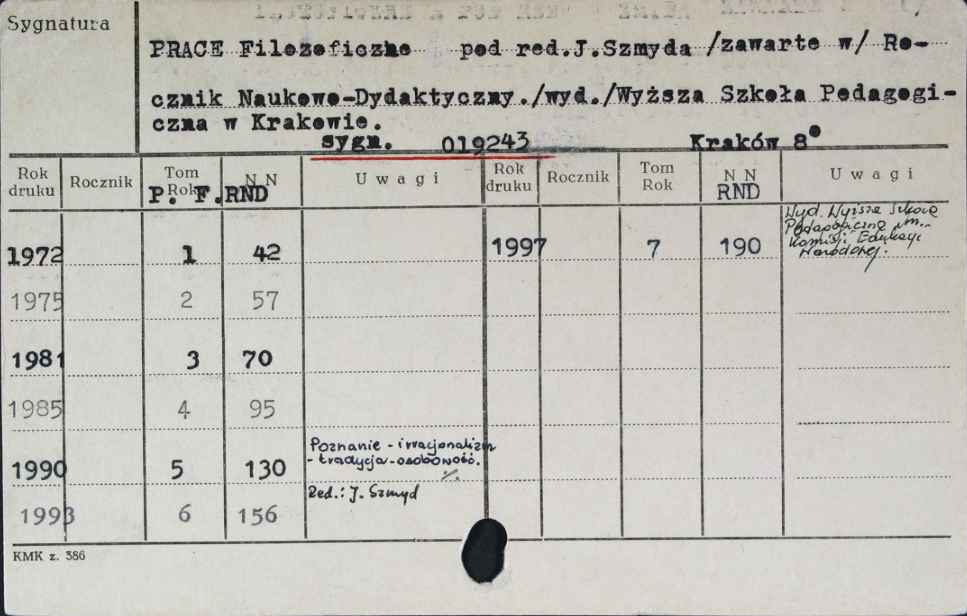 Sygnatura
PRACE Filozoficzne pod red.J.Szmyda /zawarte w/ Ro-
cznik Naukowo-Dydaktyczny./wyd./Wyższa Szkoła Pedagogi-
czna w Krakowie.
sygn. 019243 Kraków 8°
Rok druku Rocznik Tom Rok N N U w a g i Rok druku Rocznik Tom Rok N N U w a g i
P. F. RND RND
1972 1 42 1997 7 190 Wyd. Wyższa Szkoła
Pedagogiczna im.
Komisji Edukacji
Narodowej.
1975 2 57
1981 3 70
1985 4 95
1990 5 130 Poznanie - irracjonalizm
- tradycja - osobowość.
1993 6 156 Red.: J. Szmyd
KMK z. 386